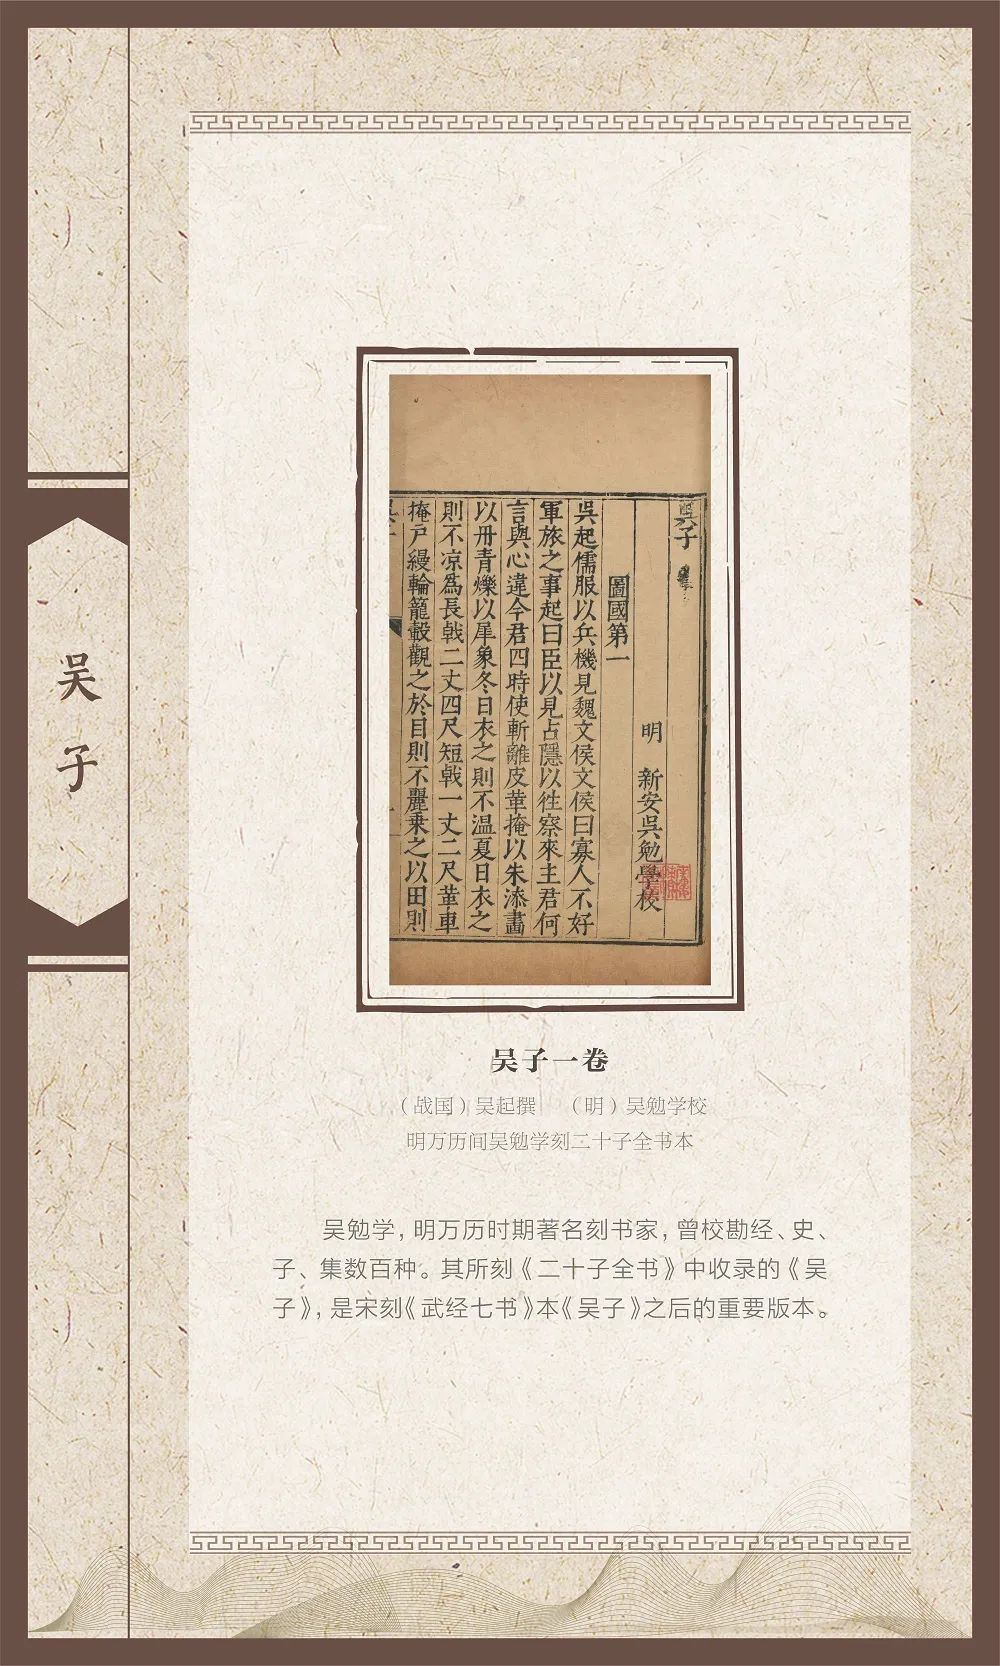 吴子
吳子
明 新安吳勉學校
圖國第一
吳起儒服以兵機見魏文侯文侯曰寡人不好
軍旅之事起曰臣以見占隱以徃察來主君何
言與心違今君四時使斬離皮革掩以朱漆畫
以丹青爍以犀象冬日衣之則不溫夏日衣之
則不凉爲長戟二丈四尺短戟一丈二尺革車
掩戸縵輪籠轂觀之於目則不麗乗之以田則
吴子一卷
(战国)吴起撰 (明)吴勉学校
明万历间吴勉学刻二十子全书本
吴勉学,明万历时期著名刻书家,曾校勘经、史、
子、集数百种。其所刻《二十子全书》中收录的《吴
子》,是宋刻《武经七书》本《吴子》之后的重要版本。